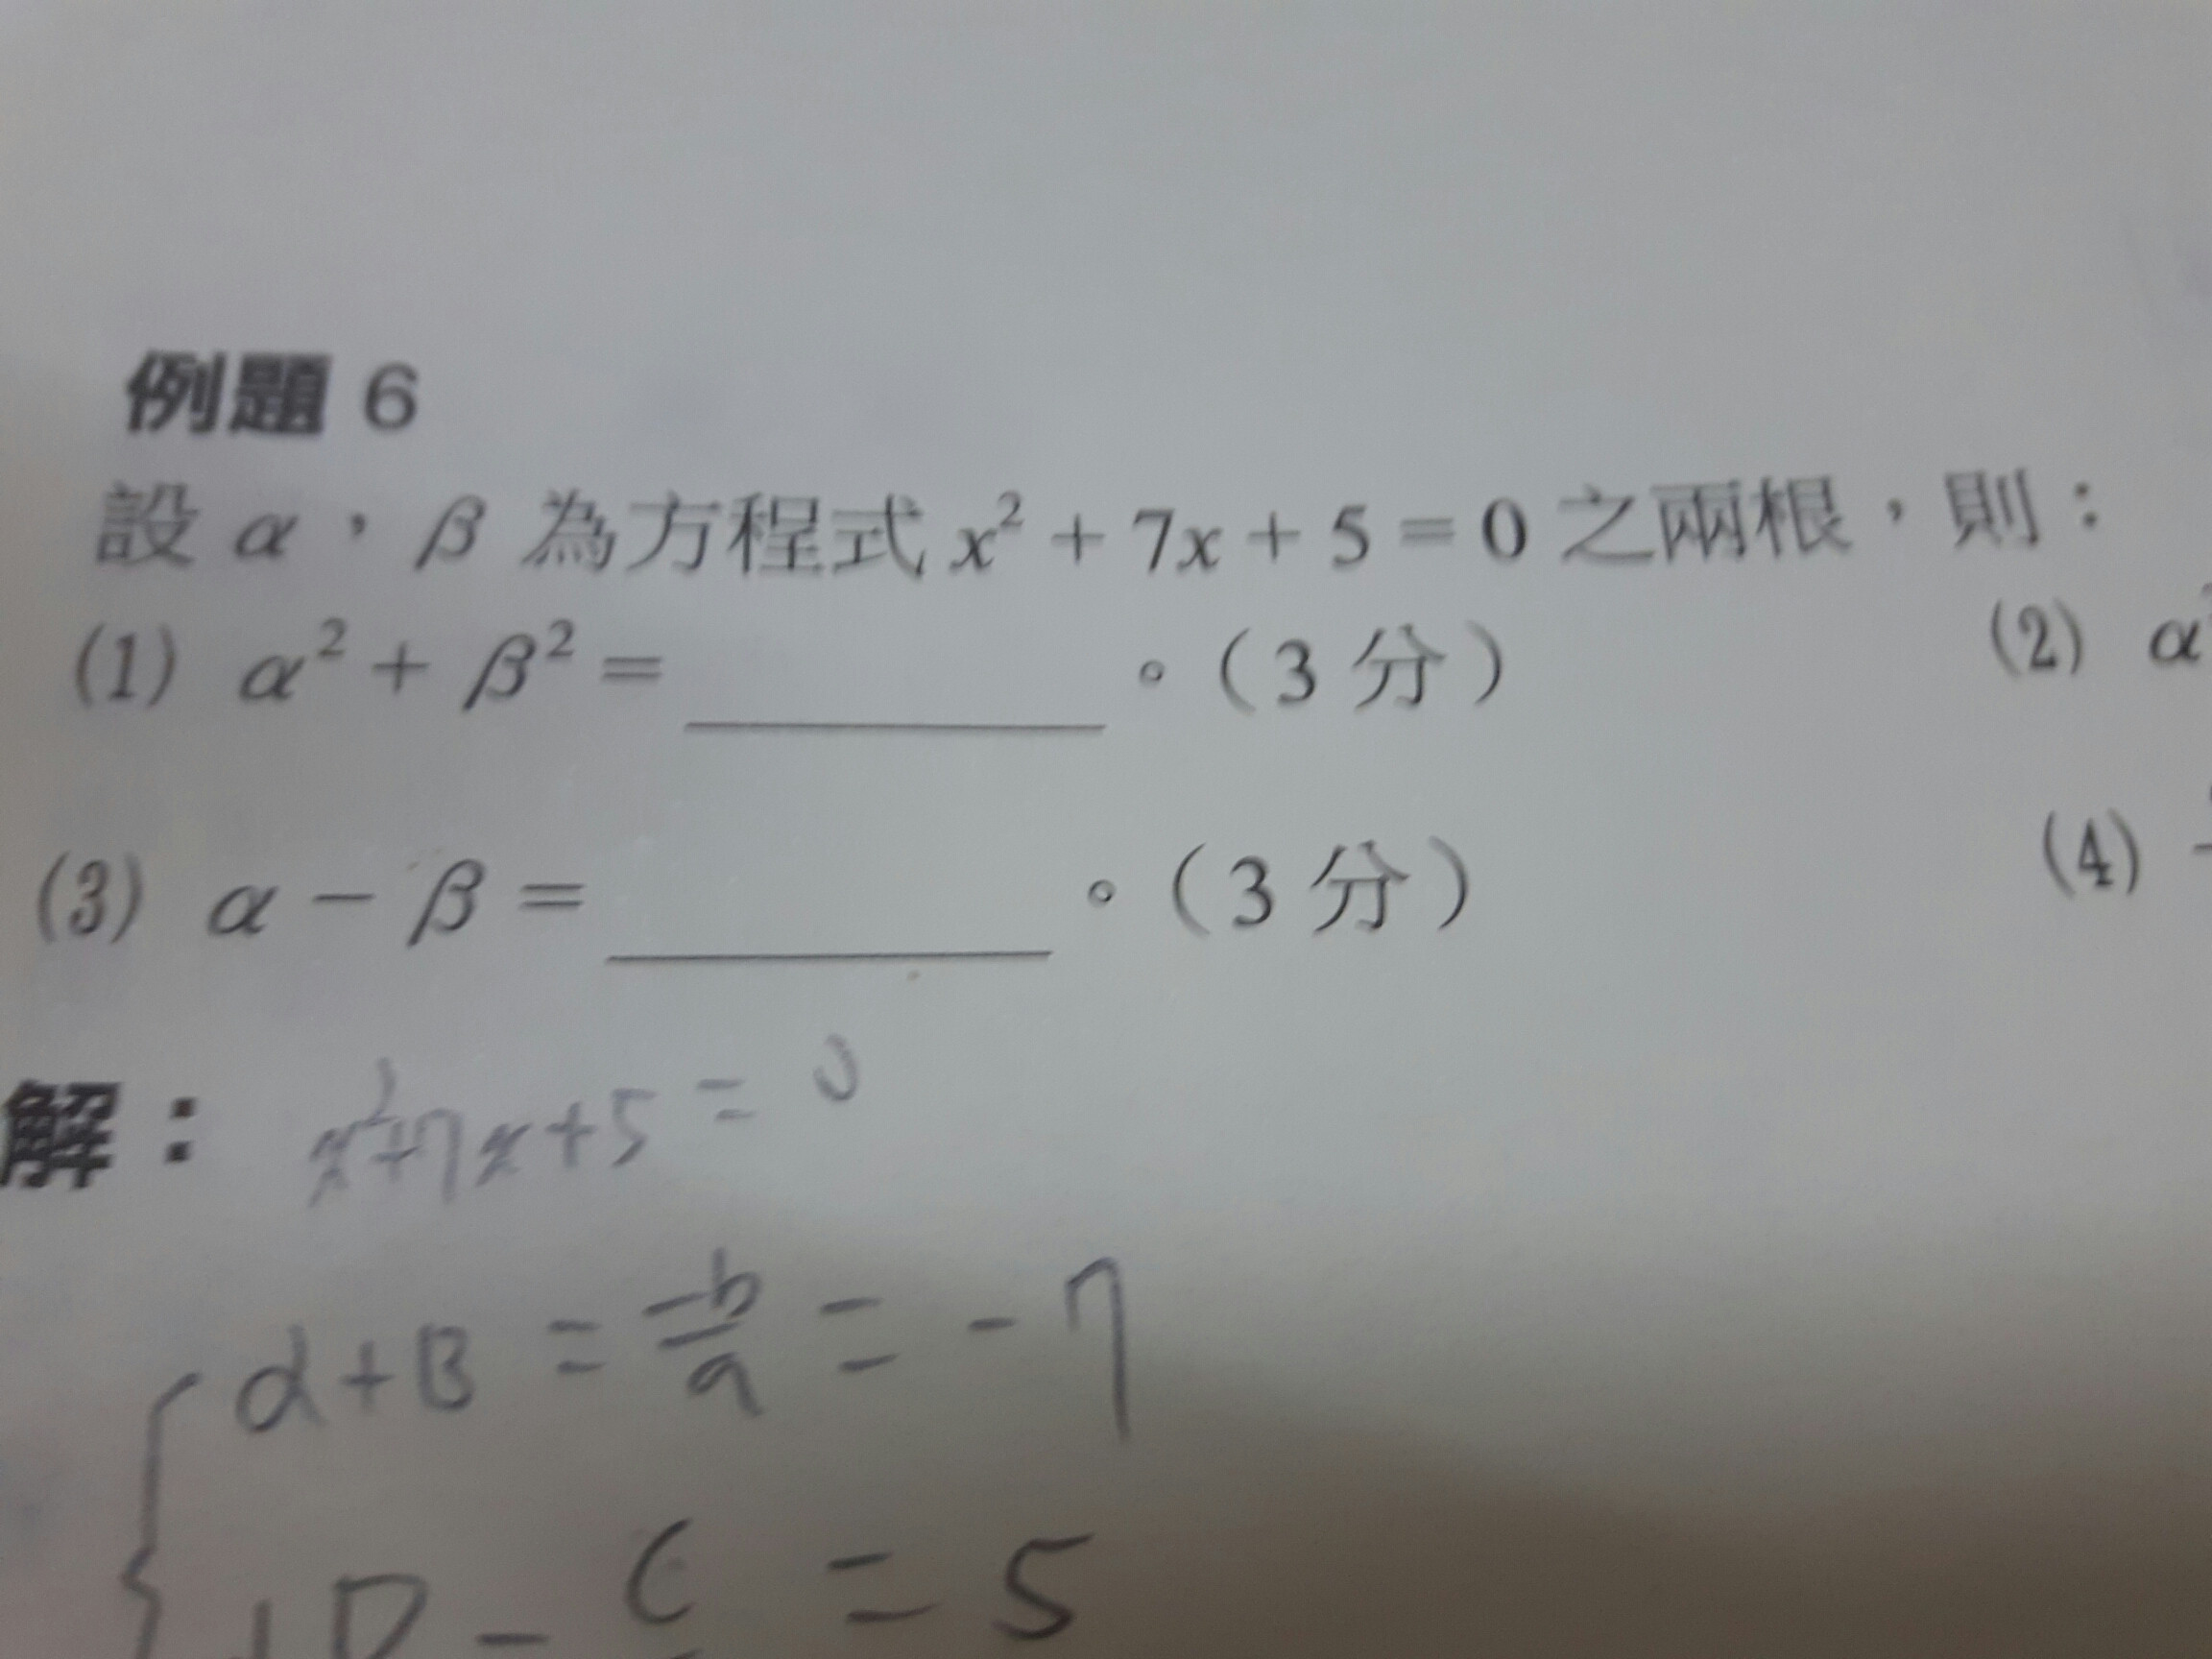 例題 6
設 α，β 為方程式 x² + 7x + 5 = 0 之兩根，則：
(1) α² + β² = ______。（3 分）
(2) α
(3) α − β = ______。（3 分）
(4)
解： x²+7x+5 = 0
α+B = -b/a = -7
= 5